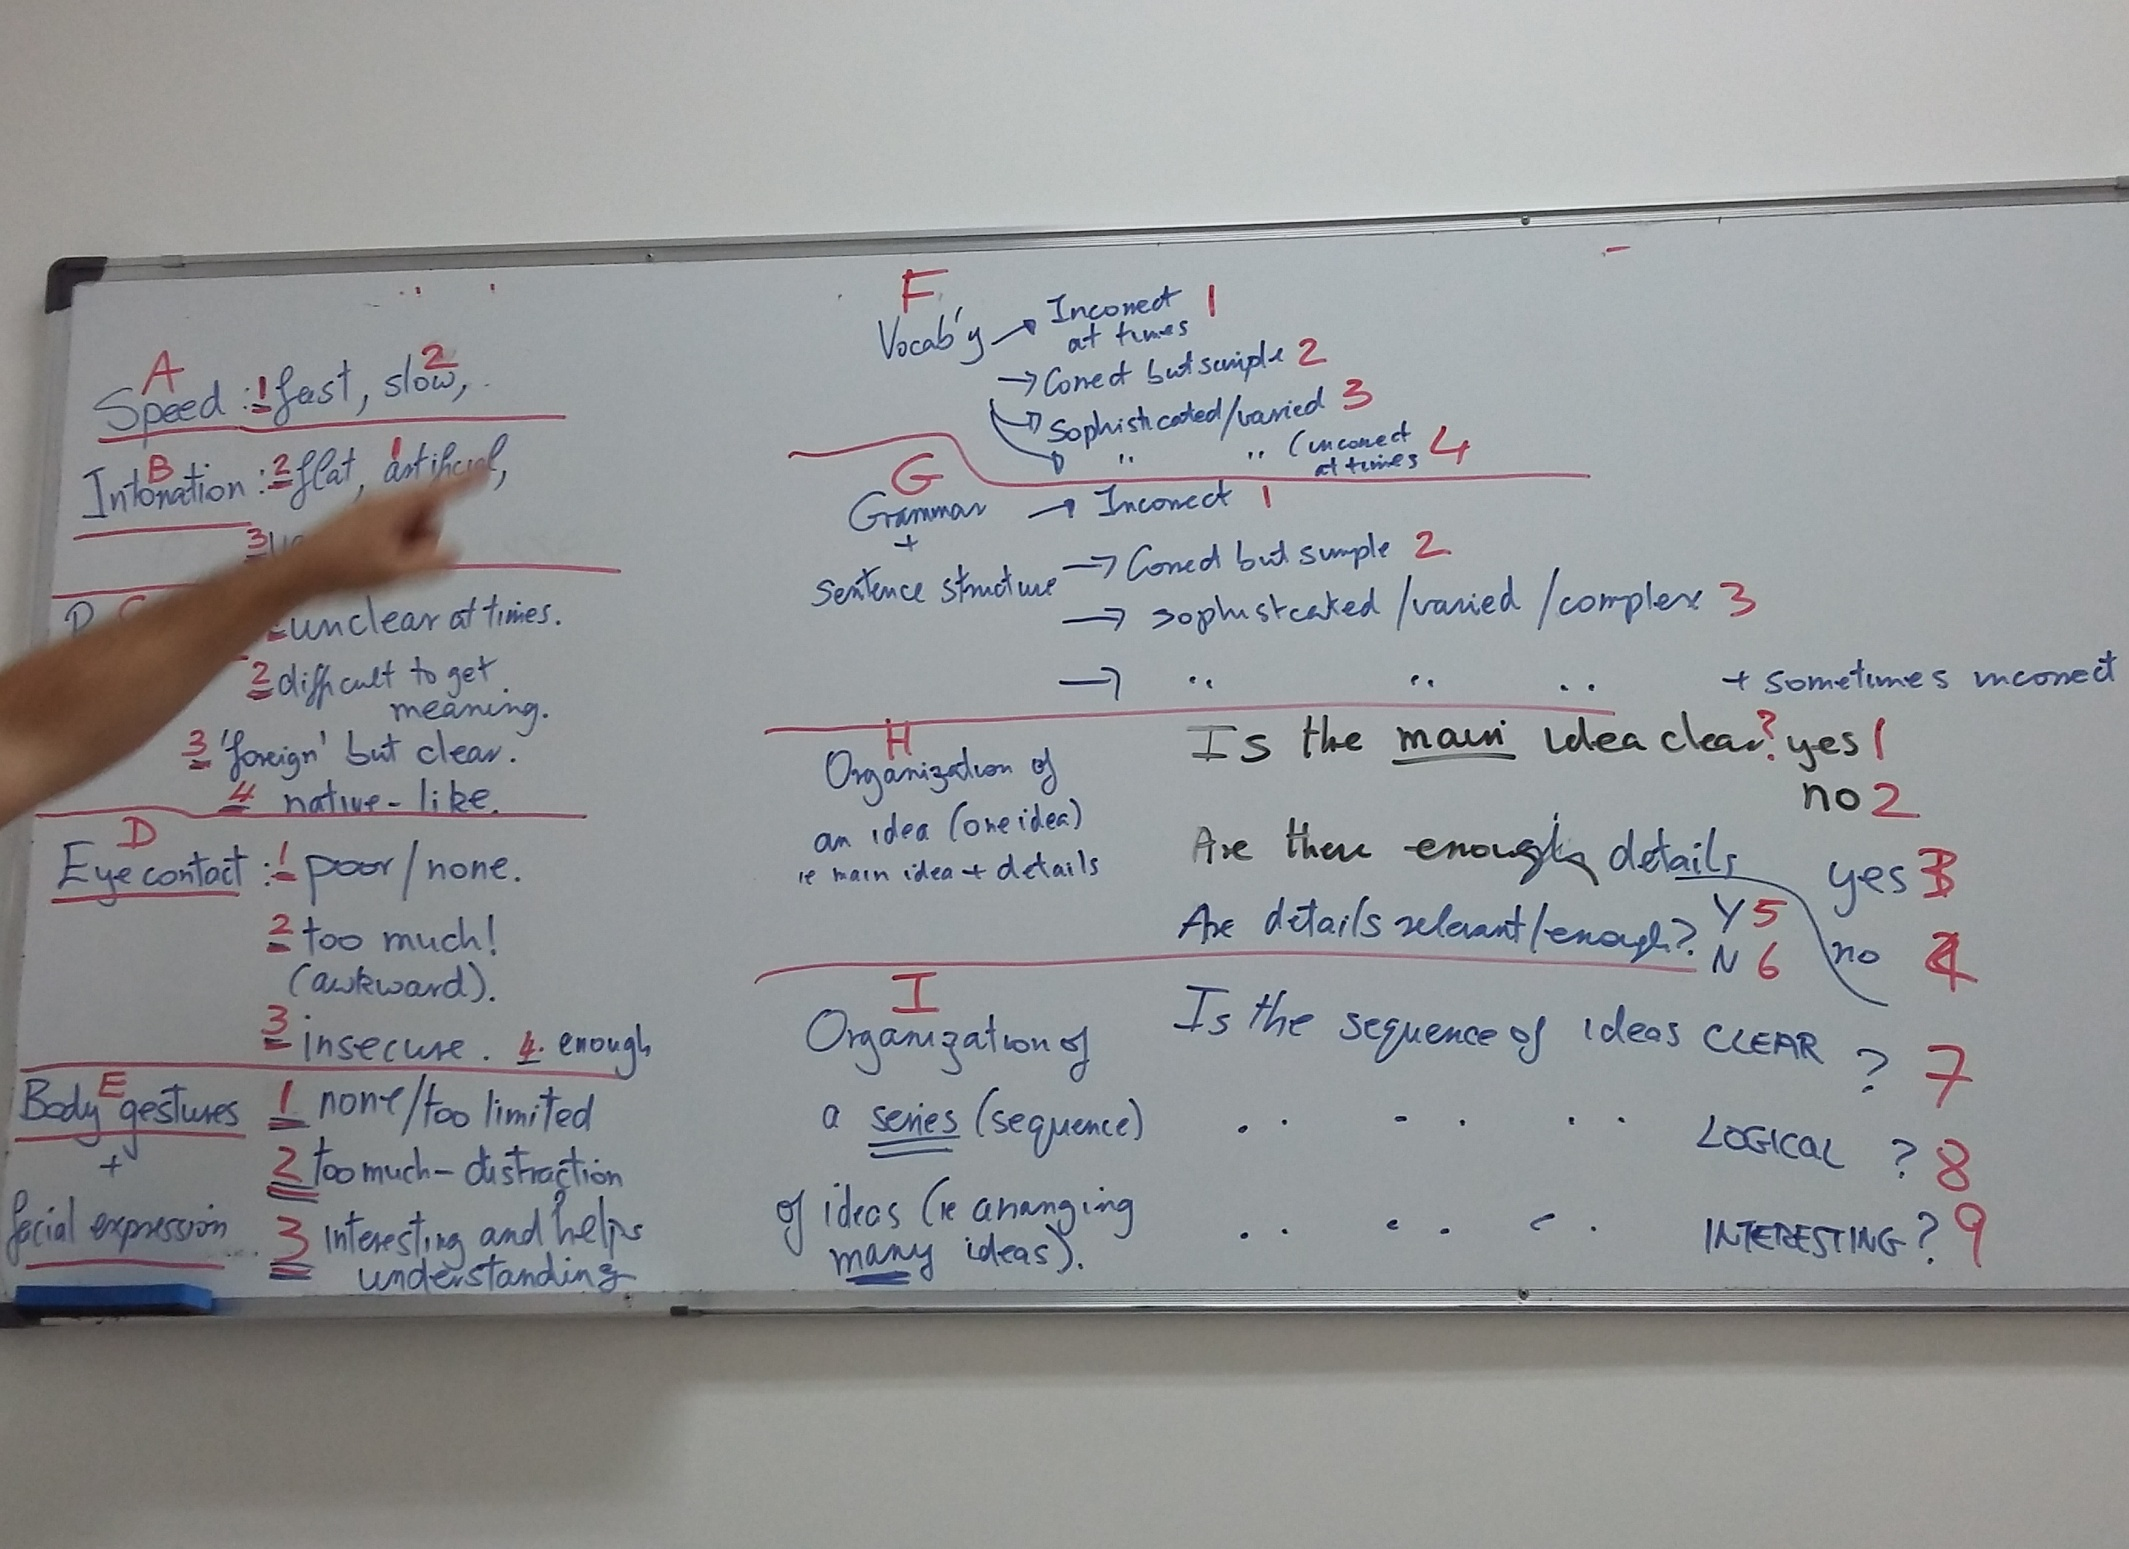 A
Speed : 1 fast, slow, 2
B
Intonation : 2 flat, artificial, 1
3
C
unclear at times.
2 difficult to get
meaning.
3 'foreign' but clear.
4 native-like.
D
Eye contact : 1 poor/none.
2 too much!
(awkward).
3 insecure. 4. enough
E
Body gestures 1 none/too limited
+
2 too much - distraction
facial expression 3 interesting and helps
understanding
F
Vocab'y → Incorrect 1
at times
→ Correct but simple 2
→ Sophisticated/varied 3
" " (incorrect
at times 4
G
Grammar → Incorrect 1
+
→ Correct but simple 2
sentence structure
→ sophistcated/varied/complex 3
→ " " " + sometimes incorrect
H
Organization of
an idea (one idea)
ie main idea + details
Is the main idea clear? yes 1
no 2
Are there enough details yes 3
no 4
Are details relevant/enough? Y 5
N 6
I
Organization of
a series (sequence)
of ideas (ie arranging
many ideas).
Is the sequence of ideas CLEAR ? 7
" " " LOGICAL ? 8
" " " INTERESTING? 9